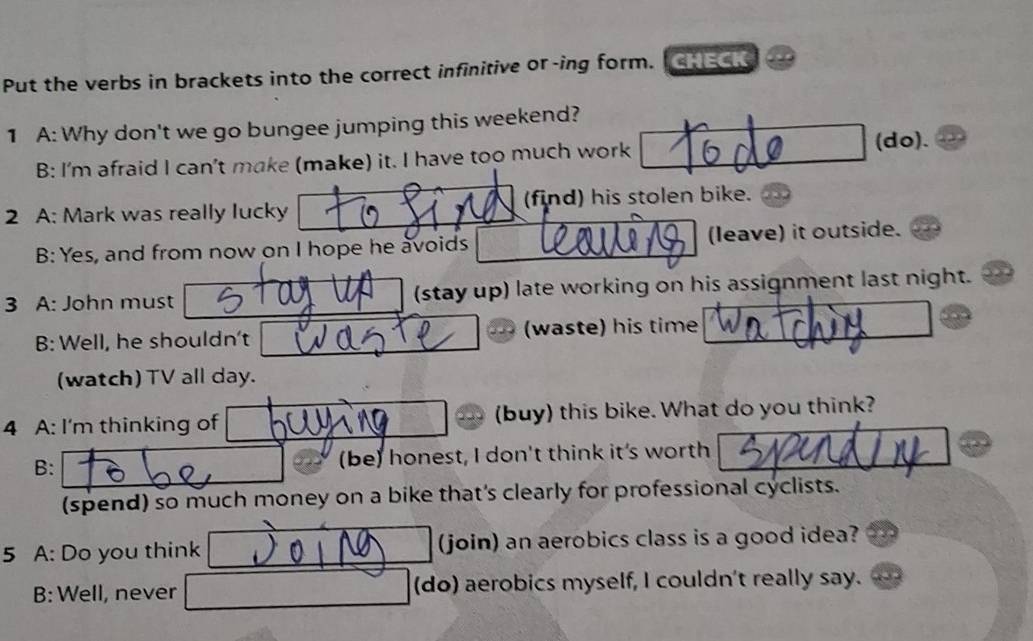 Put the verbs in brackets into the correct infinitive or -ing form. CHECK
1 A: Why don't we go bungee jumping this weekend?
B: I'm afraid I can't make (make) it. I have too much work To do (do).
2 A: Mark was really lucky to find (find) his stolen bike.
B: Yes, and from now on I hope he avoids leaving (leave) it outside.
3 A: John must stay up (stay up) late working on his assignment last night.
B: Well, he shouldn't waste (waste) his time watching
(watch) TV all day.
4 A: I'm thinking of buying (buy) this bike. What do you think?
B: to be (be) honest, I don't think it's worth spending
(spend) so much money on a bike that's clearly for professional cyclists.
5 A: Do you think Joing (join) an aerobics class is a good idea?
B: Well, never (do) aerobics myself, I couldn't really say.